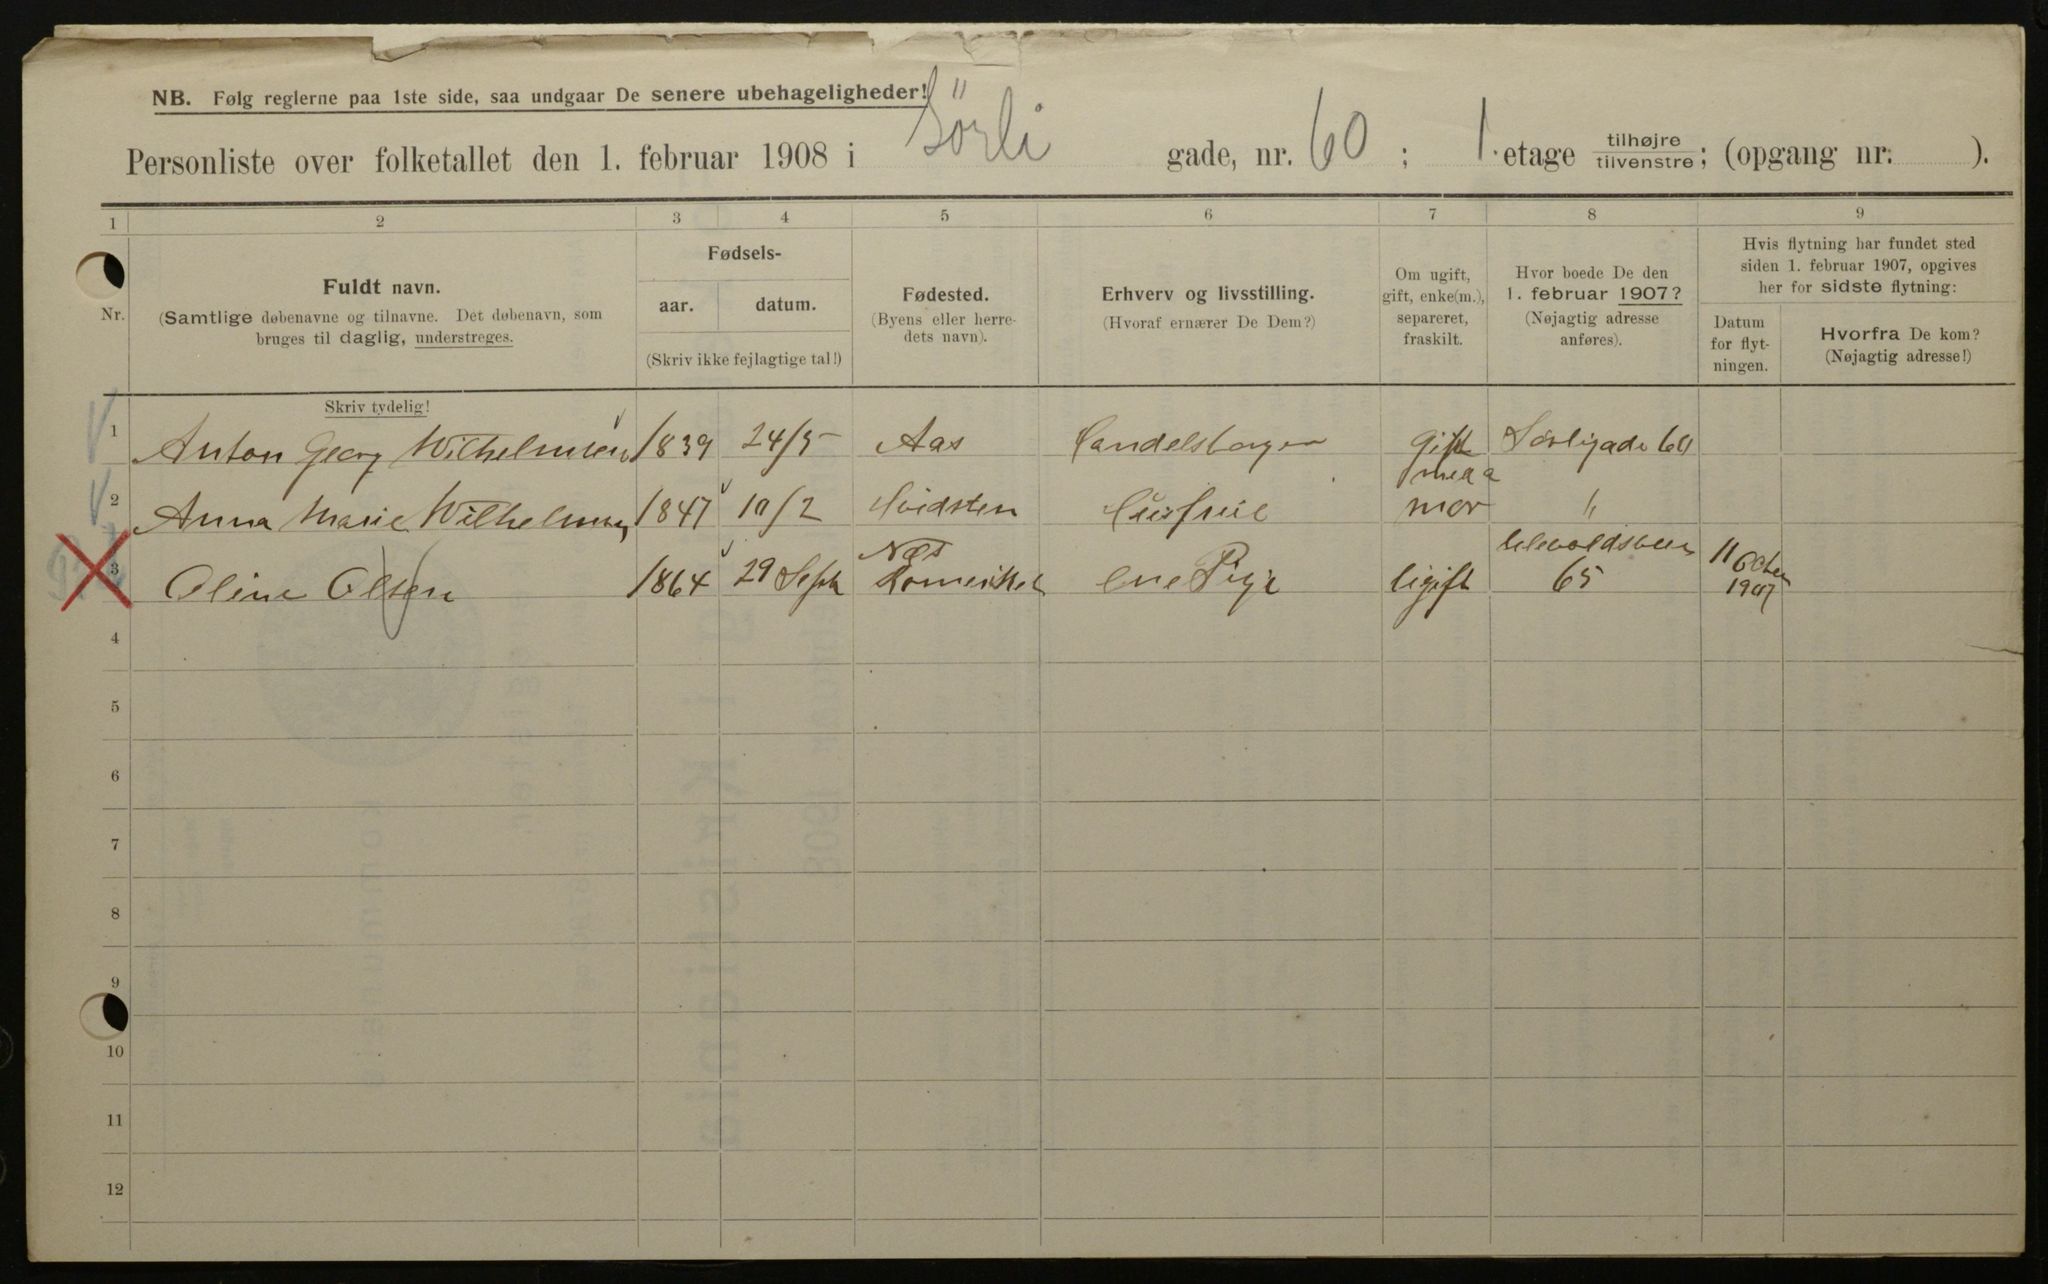 NB. Følg reglerne paa 1ste side, saa undgaar De senere ubehageligheder!
Personliste over folketallet den 1. februar 1908 i Sörli gade, nr. 60 ; 1. etage tilhøjre tilvenstre ; (opgang nr. ).
1 2 3 4 5 6 7 8 9
Nr.
Fuldt navn.
(Samtlige døbenavne og tilnavne. Det døbenavn, som
bruges til daglig, understreges.
Skriv tydelig!
Fødsels-
aar. datum.
(Skriv ikke fejlagtige tal!)
Fødested.
(Byens eller herre-
dets navn).
Erhverv og livsstilling.
(Hvoraf ernærer De Dem?)
Om ugift,
gift, enke(m.),
separeret,
fraskilt.
Hvor boede De den
1. februar 1907?
(Nøjagtig adresse
anføres).
Hvis flytning har fundet sted
siden 1. februar 1907, opgives
her for sidste flytning:
Datum
for flyt-
ningen.
Hvorfra De kom?
(Nøjagtig adresse!)
1 Anton Georg Wilhelmsen 1839 24/5 Aas Handelsborger Gift Sörligade 60
2 Anna Marie Wilhelmsen 1847 10/2 Hvidsten Husfrue "
3 Oline Olsen 1864 29 Sept Næs Romerike Ene Pige Ugift 65 11 October 1907
4
5
6
7
8
9
10
11
12